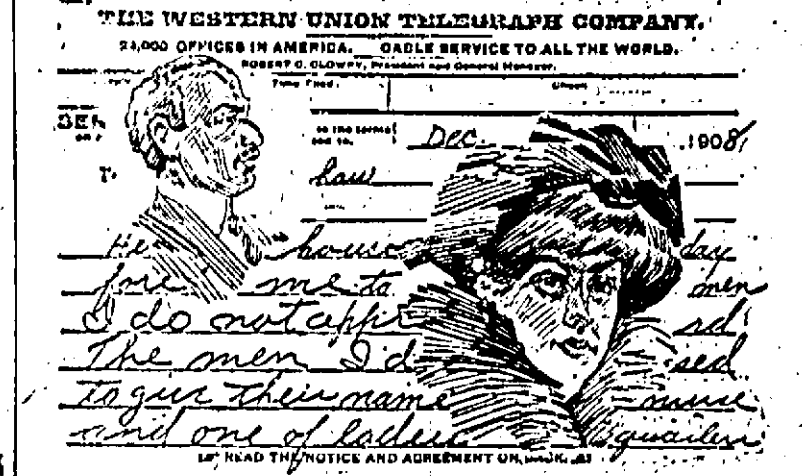 THE WESTERN UNION TELEGRAPH COMPANY.
24,000 OFFICES IN AMERICA. CABLE SERVICE TO ALL THE WORLD.
ROBERT C. CLOWRY, President and General Manager.
SEN
to the terms Dec. 1908
T
haw
He house day
fore me to men
I do not app
The men I d sed
to give their name nurse
and one of ladies
READ THE NOTICE AND AGREEMENT ON